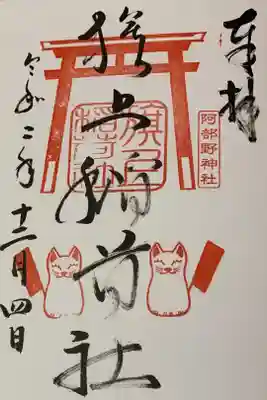 奉拝
阿部野神社
旗上稲荷社
令和二年十二月四日